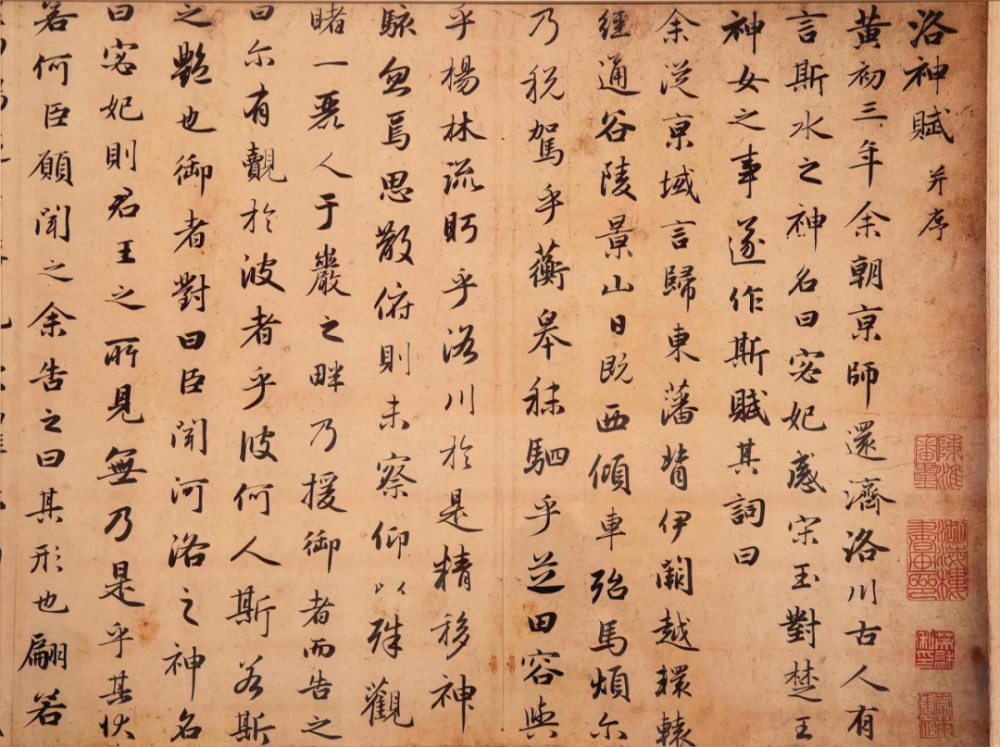 洛神賦 并序
黃初三年余朝京師還濟洛川古人有
言斯水之神名曰宓妃感宋玉對楚王
神女之事遂作斯賦其詞曰
余從京域言歸東藩背伊闕越轘轅
經通谷陵景山日既西傾車殆馬煩尒
乃稅駕乎蘅皋秣駟乎芝田容與
乎楊林流眄乎洛川於是精移神
駭忽焉思散俯則未察仰以殊觀
睹一麗人于巖之畔乃援御者而告之
曰尒有覿於彼者乎彼何人斯若斯
之艷也御者對曰臣聞河洛之神名
曰宓妃則君王之所見無乃是乎其狀
若何臣願聞之余告之曰其形也翩若